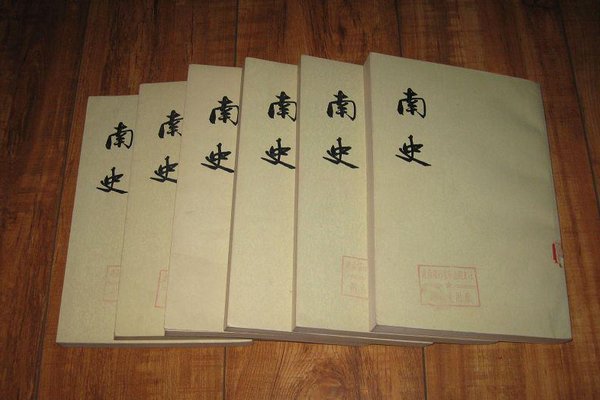 南史
南史
南史
南史
南史
南史